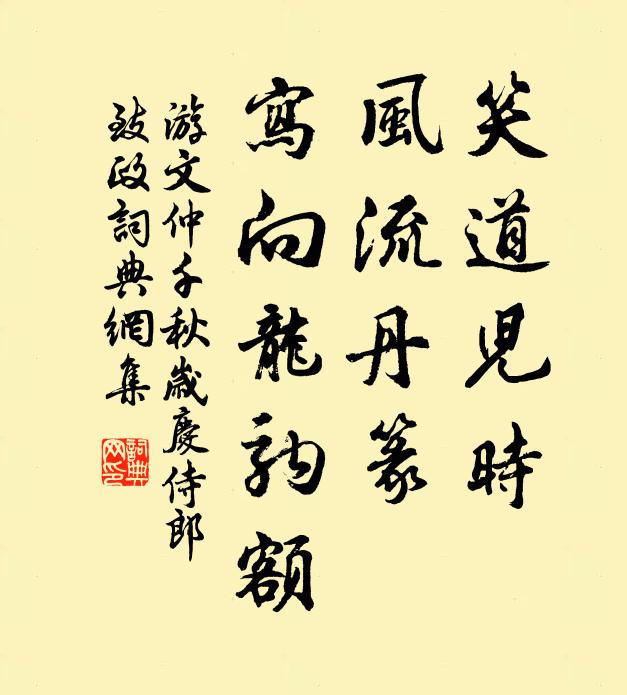 笑道兒時
風流丹篆
寫向龍駒額
游文仲千秋歲慶侍郎
致政詞典網集
詞典網印